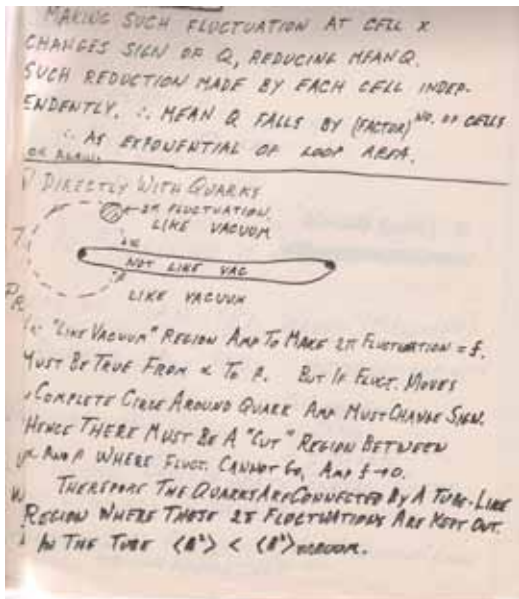 MAKING SUCH FLUCTUATION AT CELL X
CHANGES SIGN OF Q, REDUCING MEAN Q.
SUCH REDUCTION MADE BY EACH CELL INDEP-
ENDENTLY. ∴ MEAN Q FALLS BY (FACTOR)^NO. OF CELLS
∴ AS EXPONENTIAL OF LOOP AREA.
DIRECTLY WITH QUARKS
2π FLUCTUATION.
LIKE VACUUM
α
NOT LIKE VAC
β
LIKE VACUUM
"LIKE VACUUM" REGION AMP TO MAKE 2π FLUCTUATION = f.
MUST BE TRUE FROM α TO β. BUT IF FLUCT. MOVES
COMPLETE CIRCLE AROUND QUARK AMP MUST CHANGE SIGN.
HENCE THERE MUST BE A "CUT" REGION BETWEEN
α AND β WHERE FLUCT. CANNOT GO, AMP f→0.
THEREFORE THE QUARKS ARE CONNECTED BY A TUBE-LIKE
REGION WHERE THESE 2π FLUCTUATIONS ARE KEPT OUT.
IN THE TUBE ⟨B²⟩ < ⟨B²⟩VACUUM.